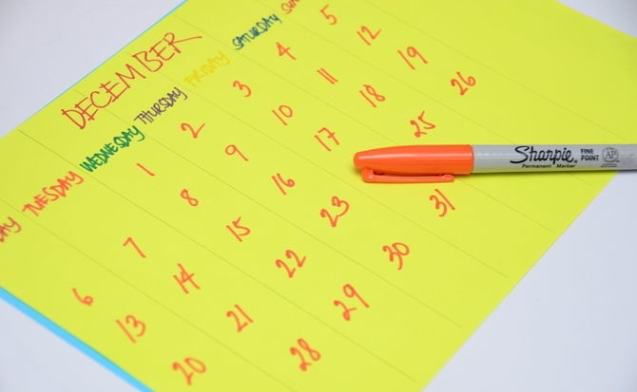 DECEMBER
AY TUESDAY WEDNESDAY THURSDAY FRIDAY SATURDAY SUN
1 2 3 4 5
6 7 8 9 10 11 12
13 14 15 16 17 18 19
20 21 22 23 25 26
28 29 30 31
Sharpie. FINE POINT AP
Permanent Marker